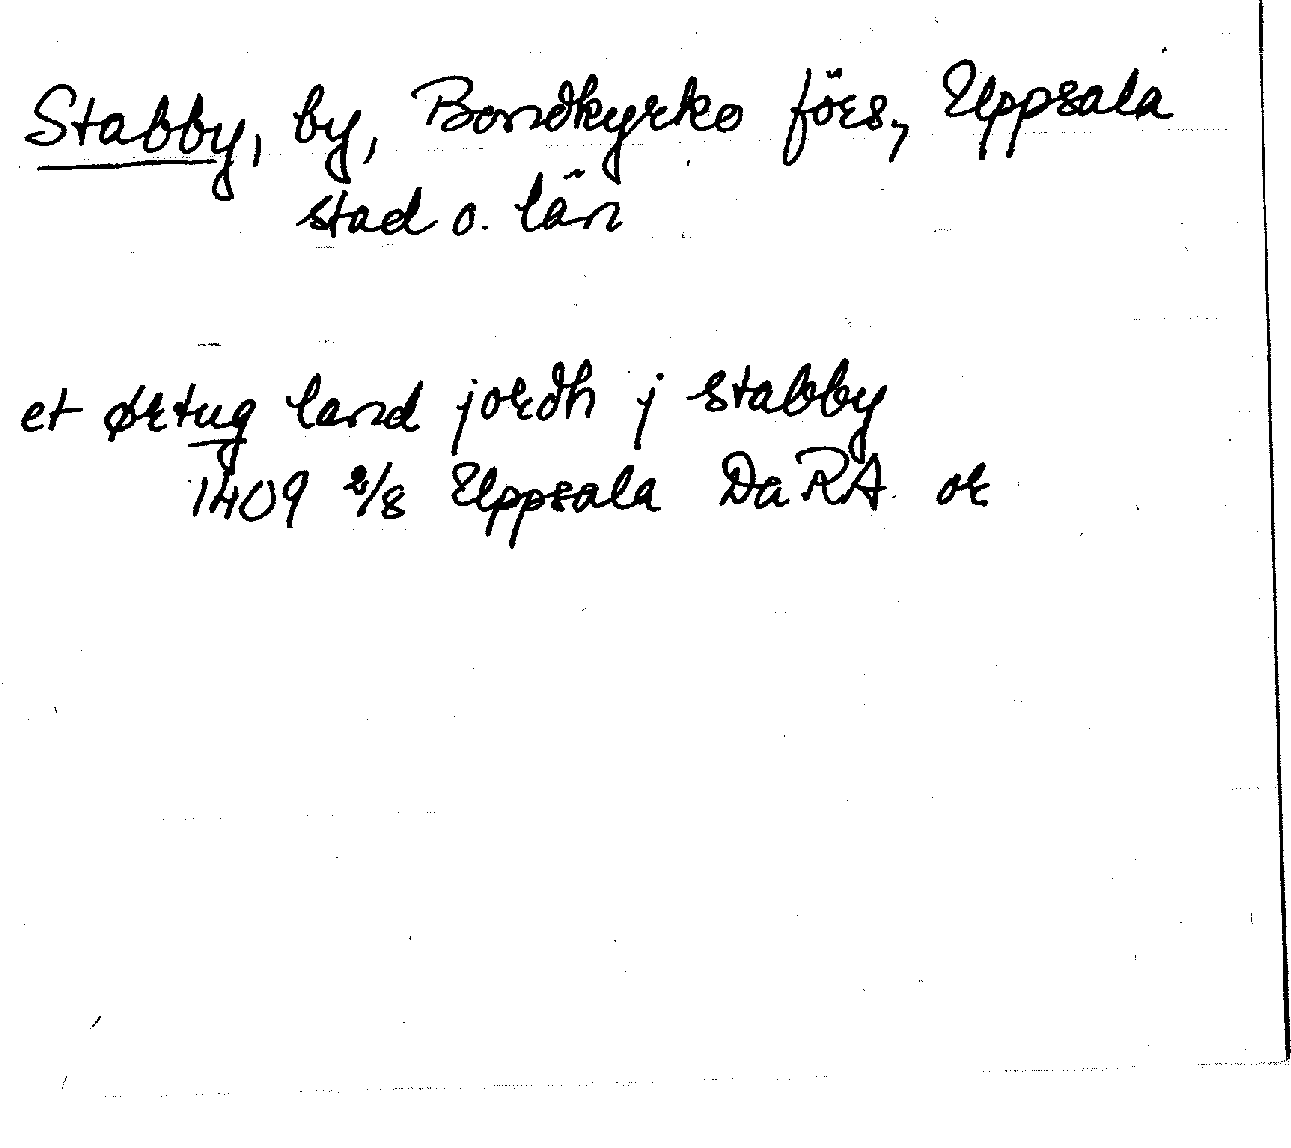 Stabby, by, Bondkyrko förs, Uppsala
stad o. län
et ørtug land jordh j stabby
1409 2/8 Uppsala DaRA or